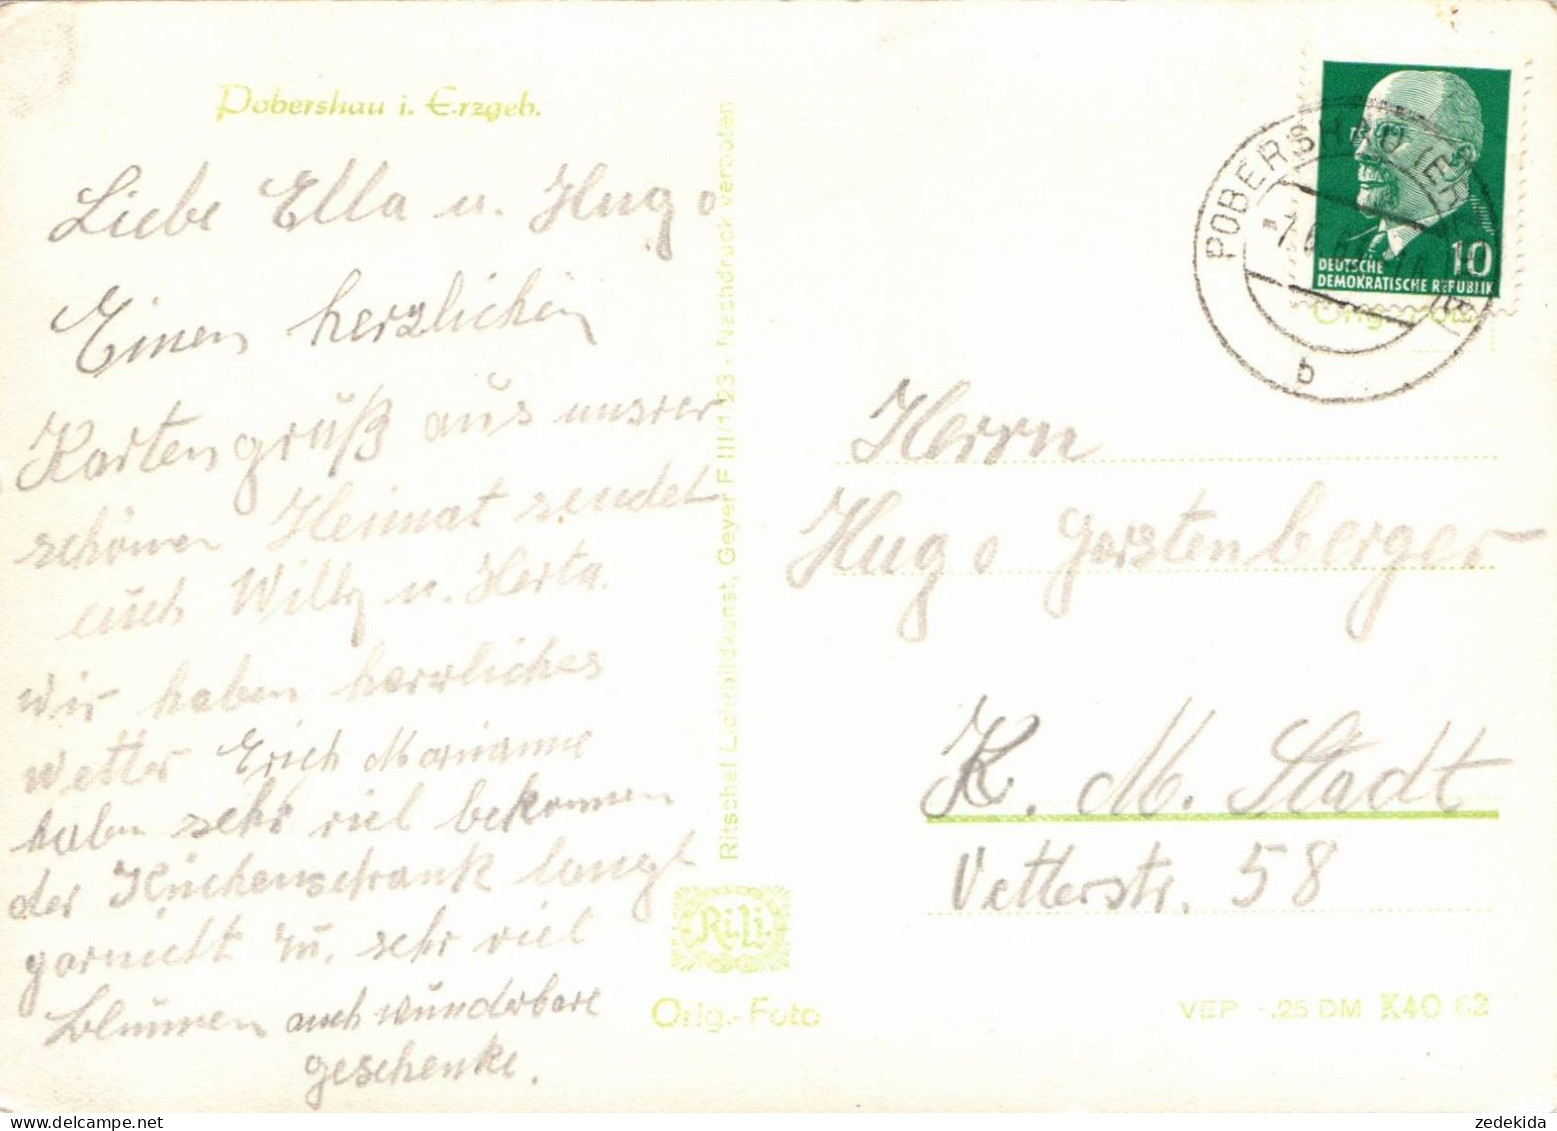 Pobershau i. Erzgeb.
Liebe Ella u. Hugo
Einen herzlichen
Kartengrüß aus unsrer
schönen Heimat sendet
euch Willy u. Herta.
wir haben herrliches
wetter Erich Marianne
haben sehr viel bekommen
der Küchenschrank langt
garnicht zu, sehr viel
Blumen auch wunderbare
geschenke.
Ritschel Lichtbildkunst, Geyer F III/1/23 - Nachdruck verboten
RiLi.
Orig.-Foto
POBERSHAU (ERZGEB
b
10
DEUTSCHE
DEMOKRATISCHE REPUBLIK
Herrn
Hugo Gerstenberger
K. M. Stadt
Vetterstr. 58
VEP -.25 DM K40 62
zedekida